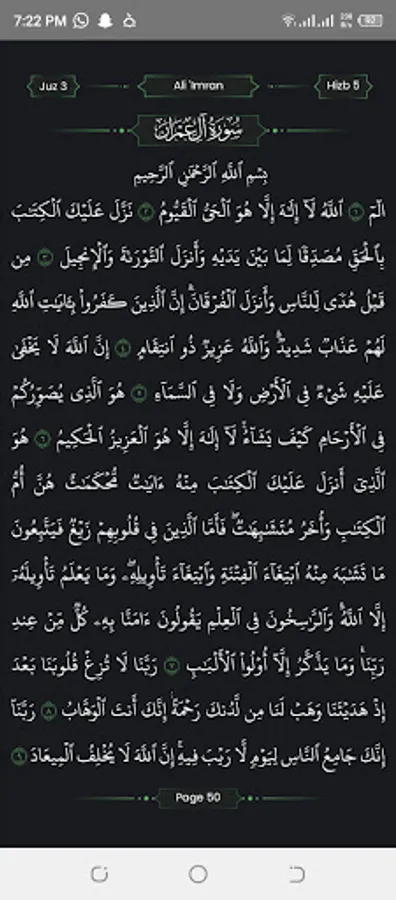 7:22 PM
92
Juz 3
Ali 'Imran
Hizb 5
سُورَةُ آلِ عِمْرَانَ
بِسْمِ ٱللَّهِ ٱلرَّحْمَٰنِ ٱلرَّحِيمِ
الٓمٓ ١ ٱللَّهُ لَآ إِلَٰهَ إِلَّا هُوَ ٱلْحَىُّ ٱلْقَيُّومُ ٢ نَزَّلَ عَلَيْكَ ٱلْكِتَٰبَ
بِٱلْحَقِّ مُصَدِّقًا لِّمَا بَيْنَ يَدَيْهِ وَأَنزَلَ ٱلتَّوْرَىٰةَ وَٱلْإِنجِيلَ ٣ مِن
قَبْلُ هُدًى لِّلنَّاسِ وَأَنزَلَ ٱلْفُرْقَانَ ۗ إِنَّ ٱلَّذِينَ كَفَرُوا۟ بِـَٔايَٰتِ ٱللَّهِ
لَهُمْ عَذَابٌ شَدِيدٌ ۗ وَٱللَّهُ عَزِيزٌ ذُو ٱنتِقَامٍ ٤ إِنَّ ٱللَّهَ لَا يَخْفَىٰ
عَلَيْهِ شَىْءٌ فِى ٱلْأَرْضِ وَلَا فِى ٱلسَّمَآءِ ٥ هُوَ ٱلَّذِى يُصَوِّرُكُمْ
فِى ٱلْأَرْحَامِ كَيْفَ يَشَآءُ ۚ لَآ إِلَٰهَ إِلَّا هُوَ ٱلْعَزِيزُ ٱلْحَكِيمُ ٦ هُوَ
ٱلَّذِىٓ أَنزَلَ عَلَيْكَ ٱلْكِتَٰبَ مِنْهُ ءَايَٰتٌ مُّحْكَمَٰتٌ هُنَّ أُمُّ
ٱلْكِتَٰبِ وَأُخَرُ مُتَشَٰبِهَٰتٌ ۖ فَأَمَّا ٱلَّذِينَ فِى قُلُوبِهِمْ زَيْغٌ فَيَتَّبِعُونَ
مَا تَشَٰبَهَ مِنْهُ ٱبْتِغَآءَ ٱلْفِتْنَةِ وَٱبْتِغَآءَ تَأْوِيلِهِۦ ۗ وَمَا يَعْلَمُ تَأْوِيلَهُۥٓ
إِلَّا ٱللَّهُ ۗ وَٱلرَّٰسِخُونَ فِى ٱلْعِلْمِ يَقُولُونَ ءَامَنَّا بِهِۦ كُلٌّ مِّنْ عِندِ
رَبِّنَا ۗ وَمَا يَذَّكَّرُ إِلَّآ أُو۟لُوا۟ ٱلْأَلْبَٰبِ ٧ رَبَّنَا لَا تُزِغْ قُلُوبَنَا بَعْدَ
إِذْ هَدَيْتَنَا وَهَبْ لَنَا مِن لَّدُنكَ رَحْمَةً ۚ إِنَّكَ أَنتَ ٱلْوَهَّابُ ٨ رَبَّنَآ
إِنَّكَ جَامِعُ ٱلنَّاسِ لِيَوْمٍ لَّا رَيْبَ فِيهِ ۚ إِنَّ ٱللَّهَ لَا يُخْلِفُ ٱلْمِيعَادَ ٩
Page 50